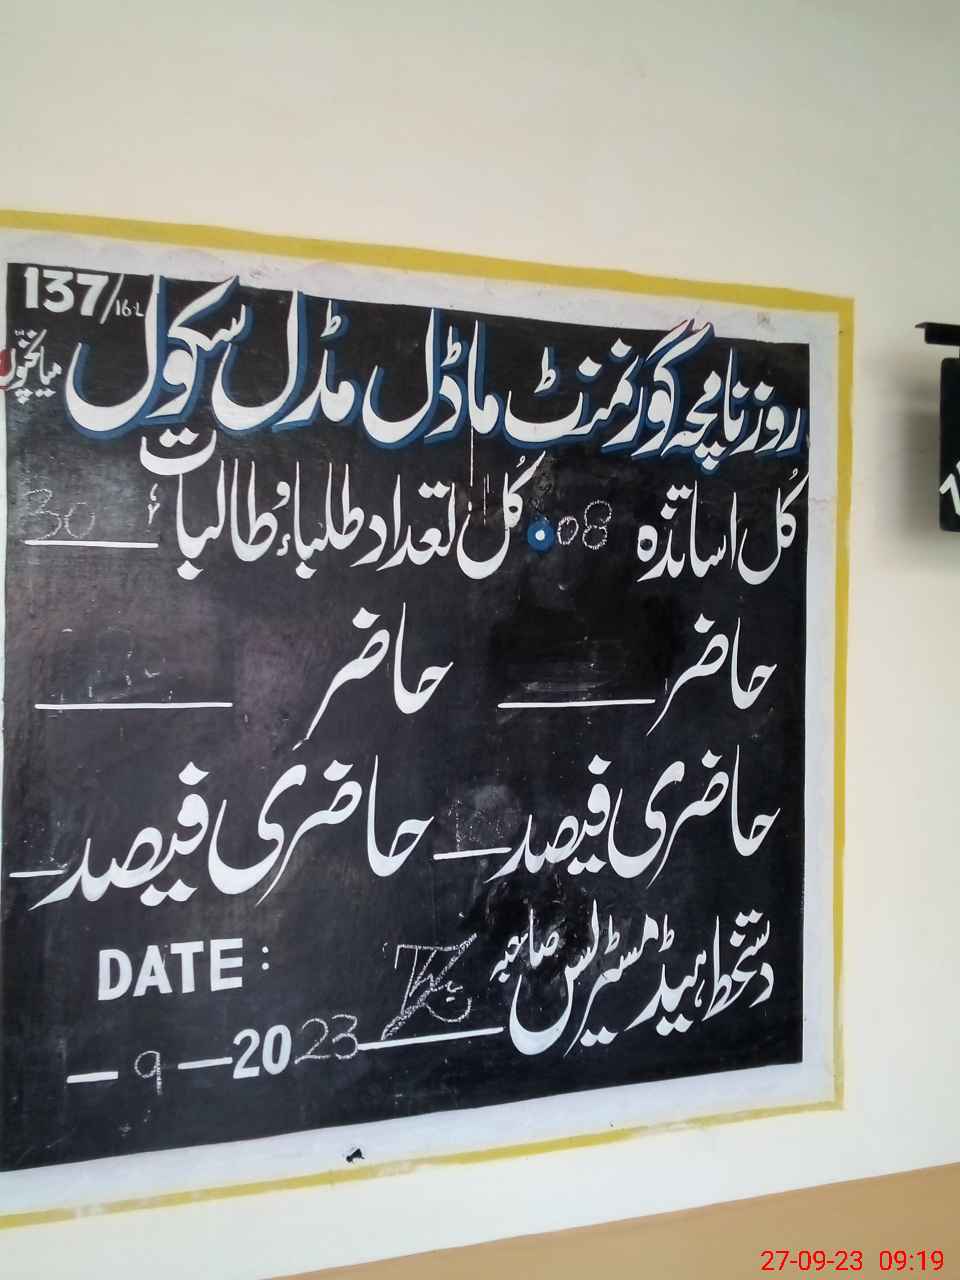 روزنامچہ گورنمنٹ ماڈل مڈل سکول 137/16-L میانچنوں
کُل اساتذہ 08 کُل تعداد طلباء و طالبات 30
حاضر حاضر
حاضری فیصد حاضری فیصد
دستخط ہیڈ مسٹریس صاحبہ
DATE :
- 9 - 2023
27-09-23 09:19